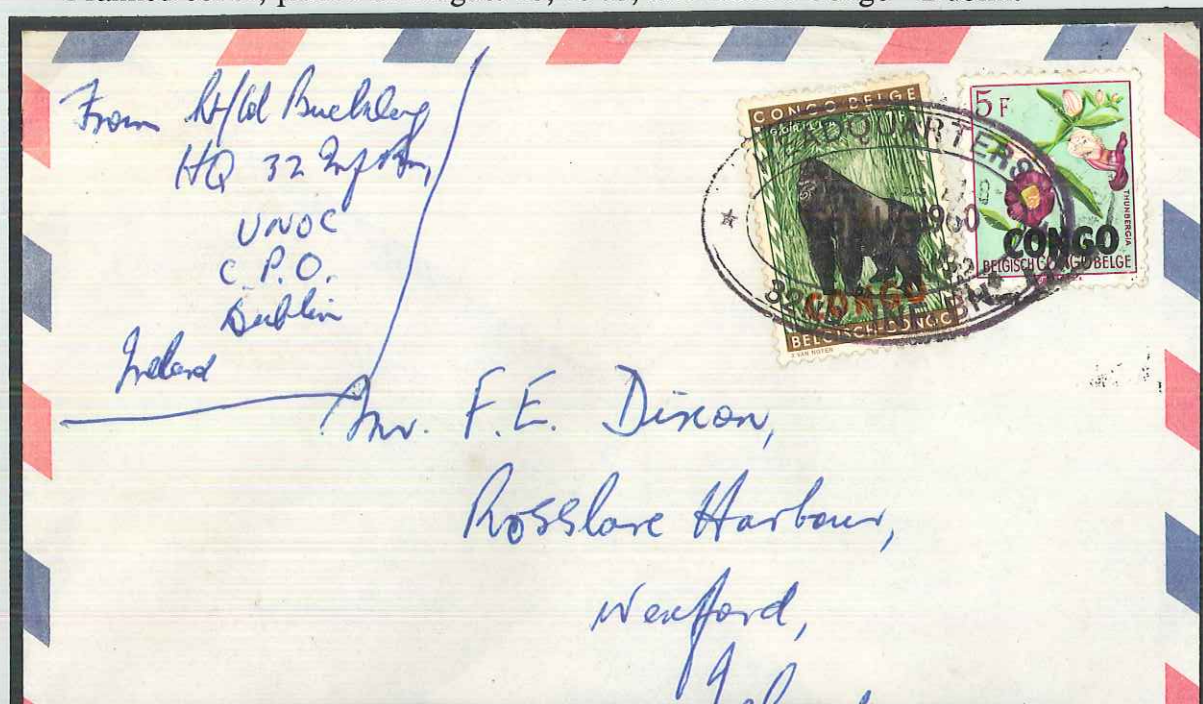 From Buckley
HQ 32 Inf Bn,
UNOC
C.P.O.
Dublin
Ireland
CONGO BELGE
GORILLE
CONGO
BELGISCH-CONGO
5F
THUNBERGIA
CONGO
BELGISCH CONGO BELGE
HEADQUARTERS
1960
32 INF. BN.
Mr. F.E. Dixon,
Rosslare Harbour,
Wexford,
Ireland